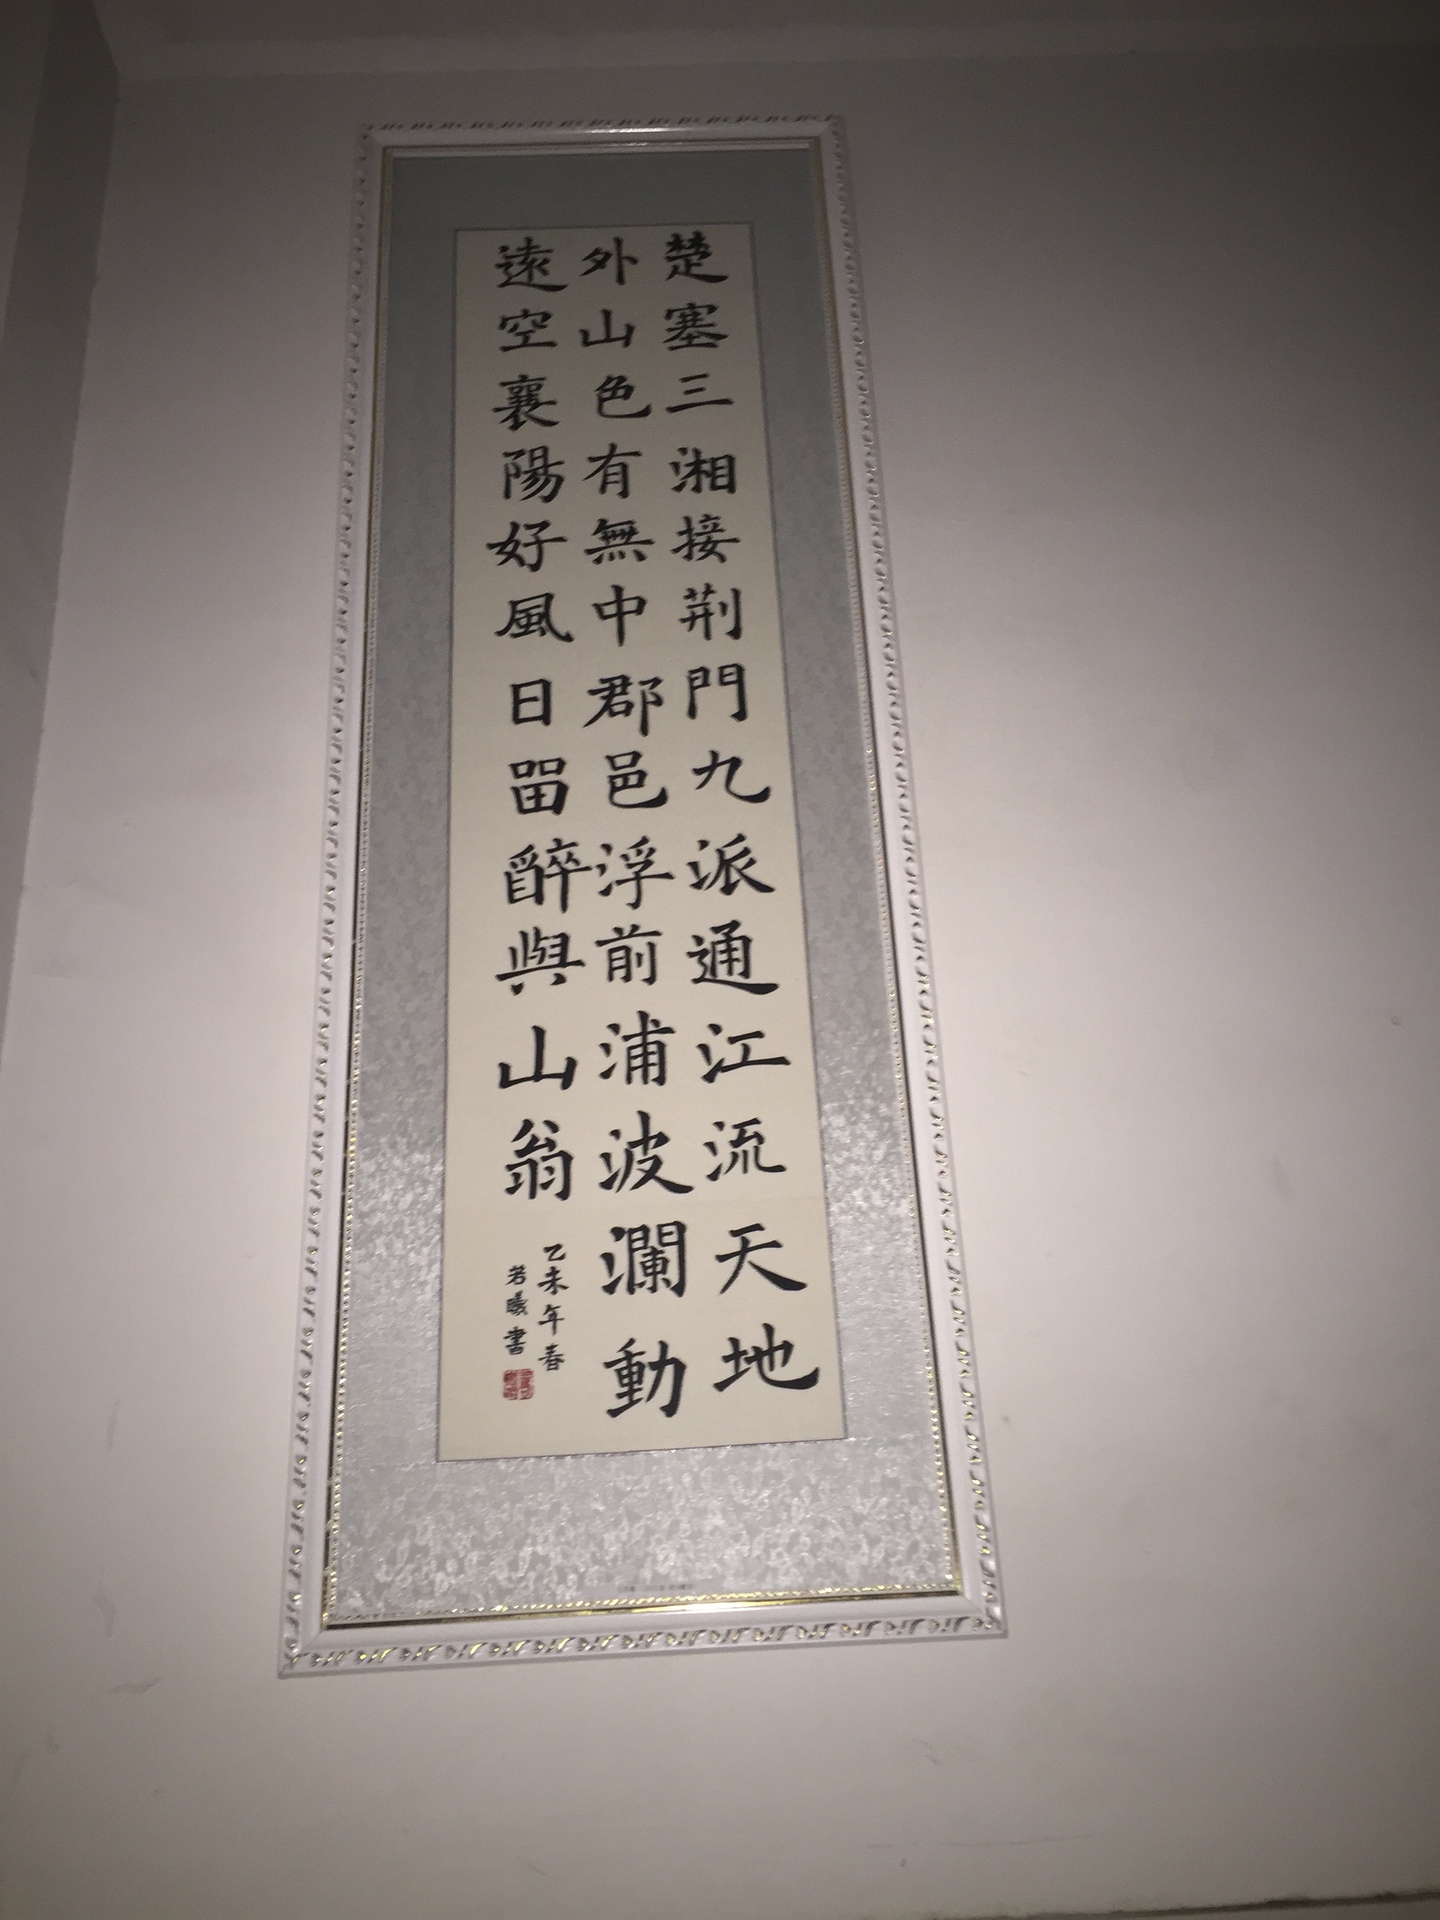 楚塞三湘接荆門九派通江流天地
外山色有無中郡邑浮前浦波瀾動
遠空襄陽好風日留醉與山翁
乙未年春
若曦書